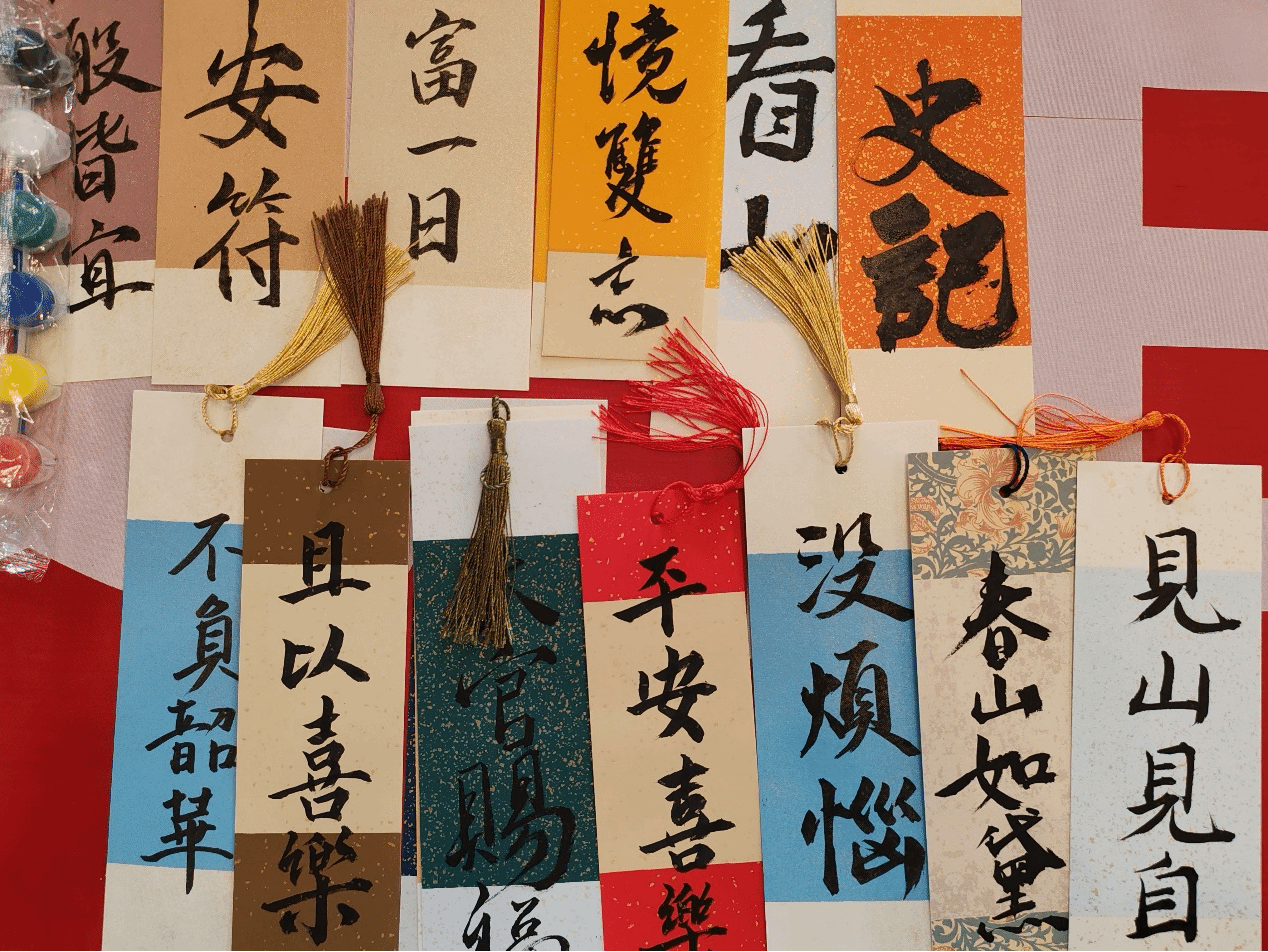 般皆宜
安符
富一日
境雙忘
看山
史記
不負韶華
且以喜樂
天官賜福
平安喜樂
没煩惱
春山如黛
見山見自